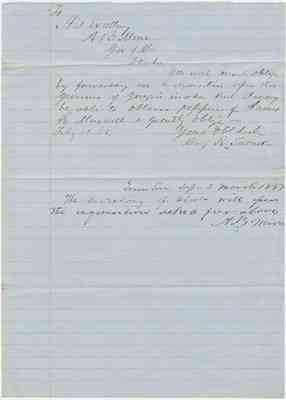 To
His Excellency
A B Moore
Gov of Ala
Sir
You will much oblige
by forwarding me a requisition upon the
Governor of Georgia in order that I may
be able to obtain possession of James
R. & greatly oblige
Yours
Executive Dept 3 March 1857
The Secretary of State will issue
the requisition asked for above
A B Moore